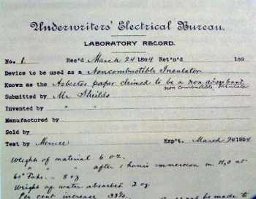 Underwriters' Electrical Bureau.
LABORATORY RECORD.
No. 1. Rec'd March 24 1894 Ret'd 189
Device to be used as a Noncombustible Insulator
Known as the Asbestos paper claimed to be a non absorbent
non combustible
Submitted by Mr. Shields
Invented by "
Manufactured by
Sold by
Test by Merrill Exp't. March 24 1894
Weight of material 6 oz.
" " after 1 hours immersion in H2O
Weight of water absorbed 2 oz
Per cent increase 33%